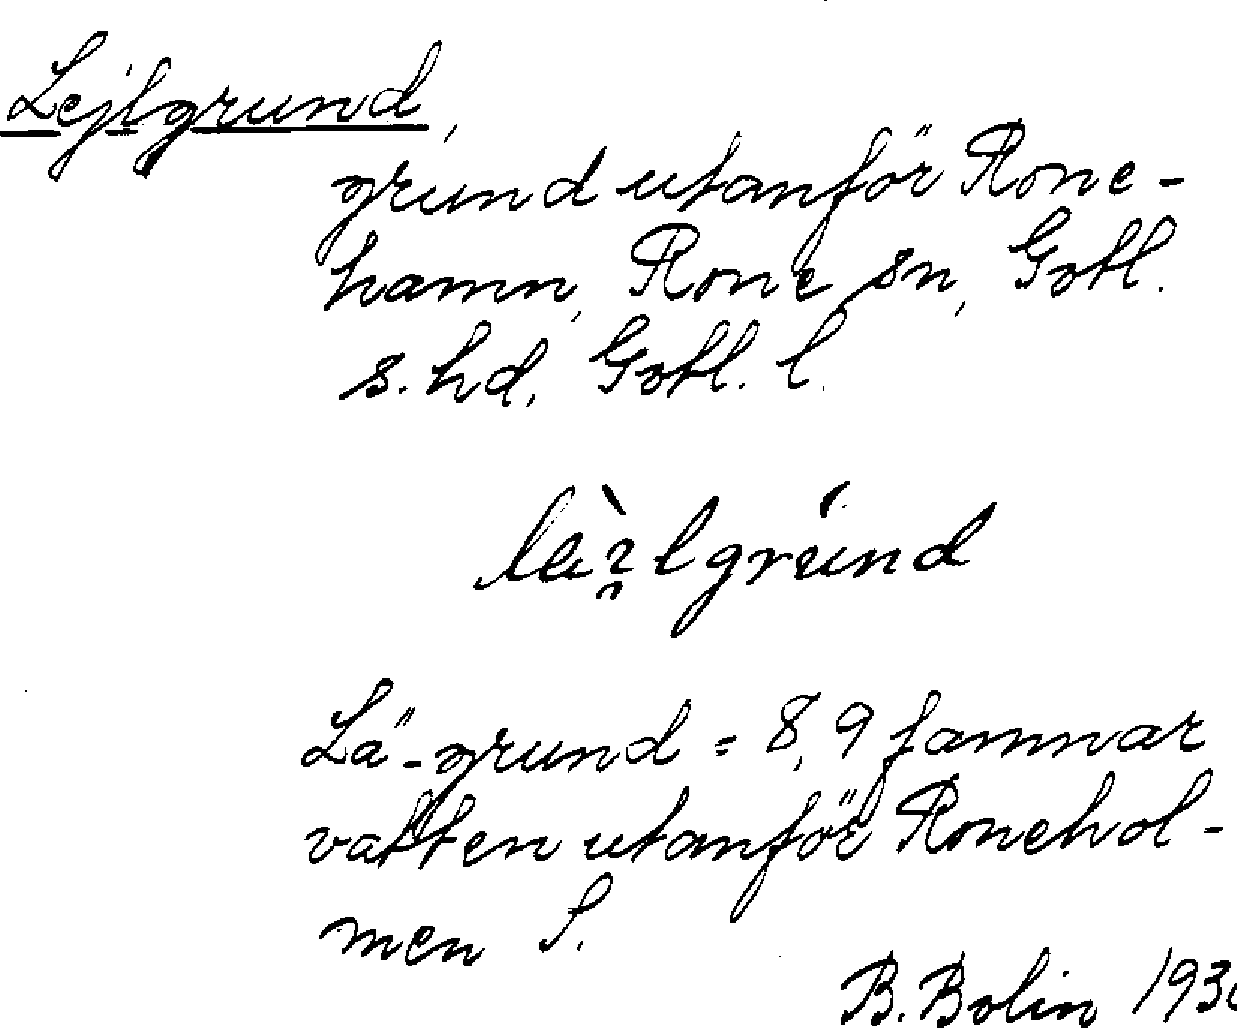 Lejlgrund,
grund utanför Rone-
hamn, Rone sn, Gotl.
s. hd, Gotl. l.
Lä-grund = 8,9 famnar
vatten utanför Ronehol-
men S.
B. Bolin